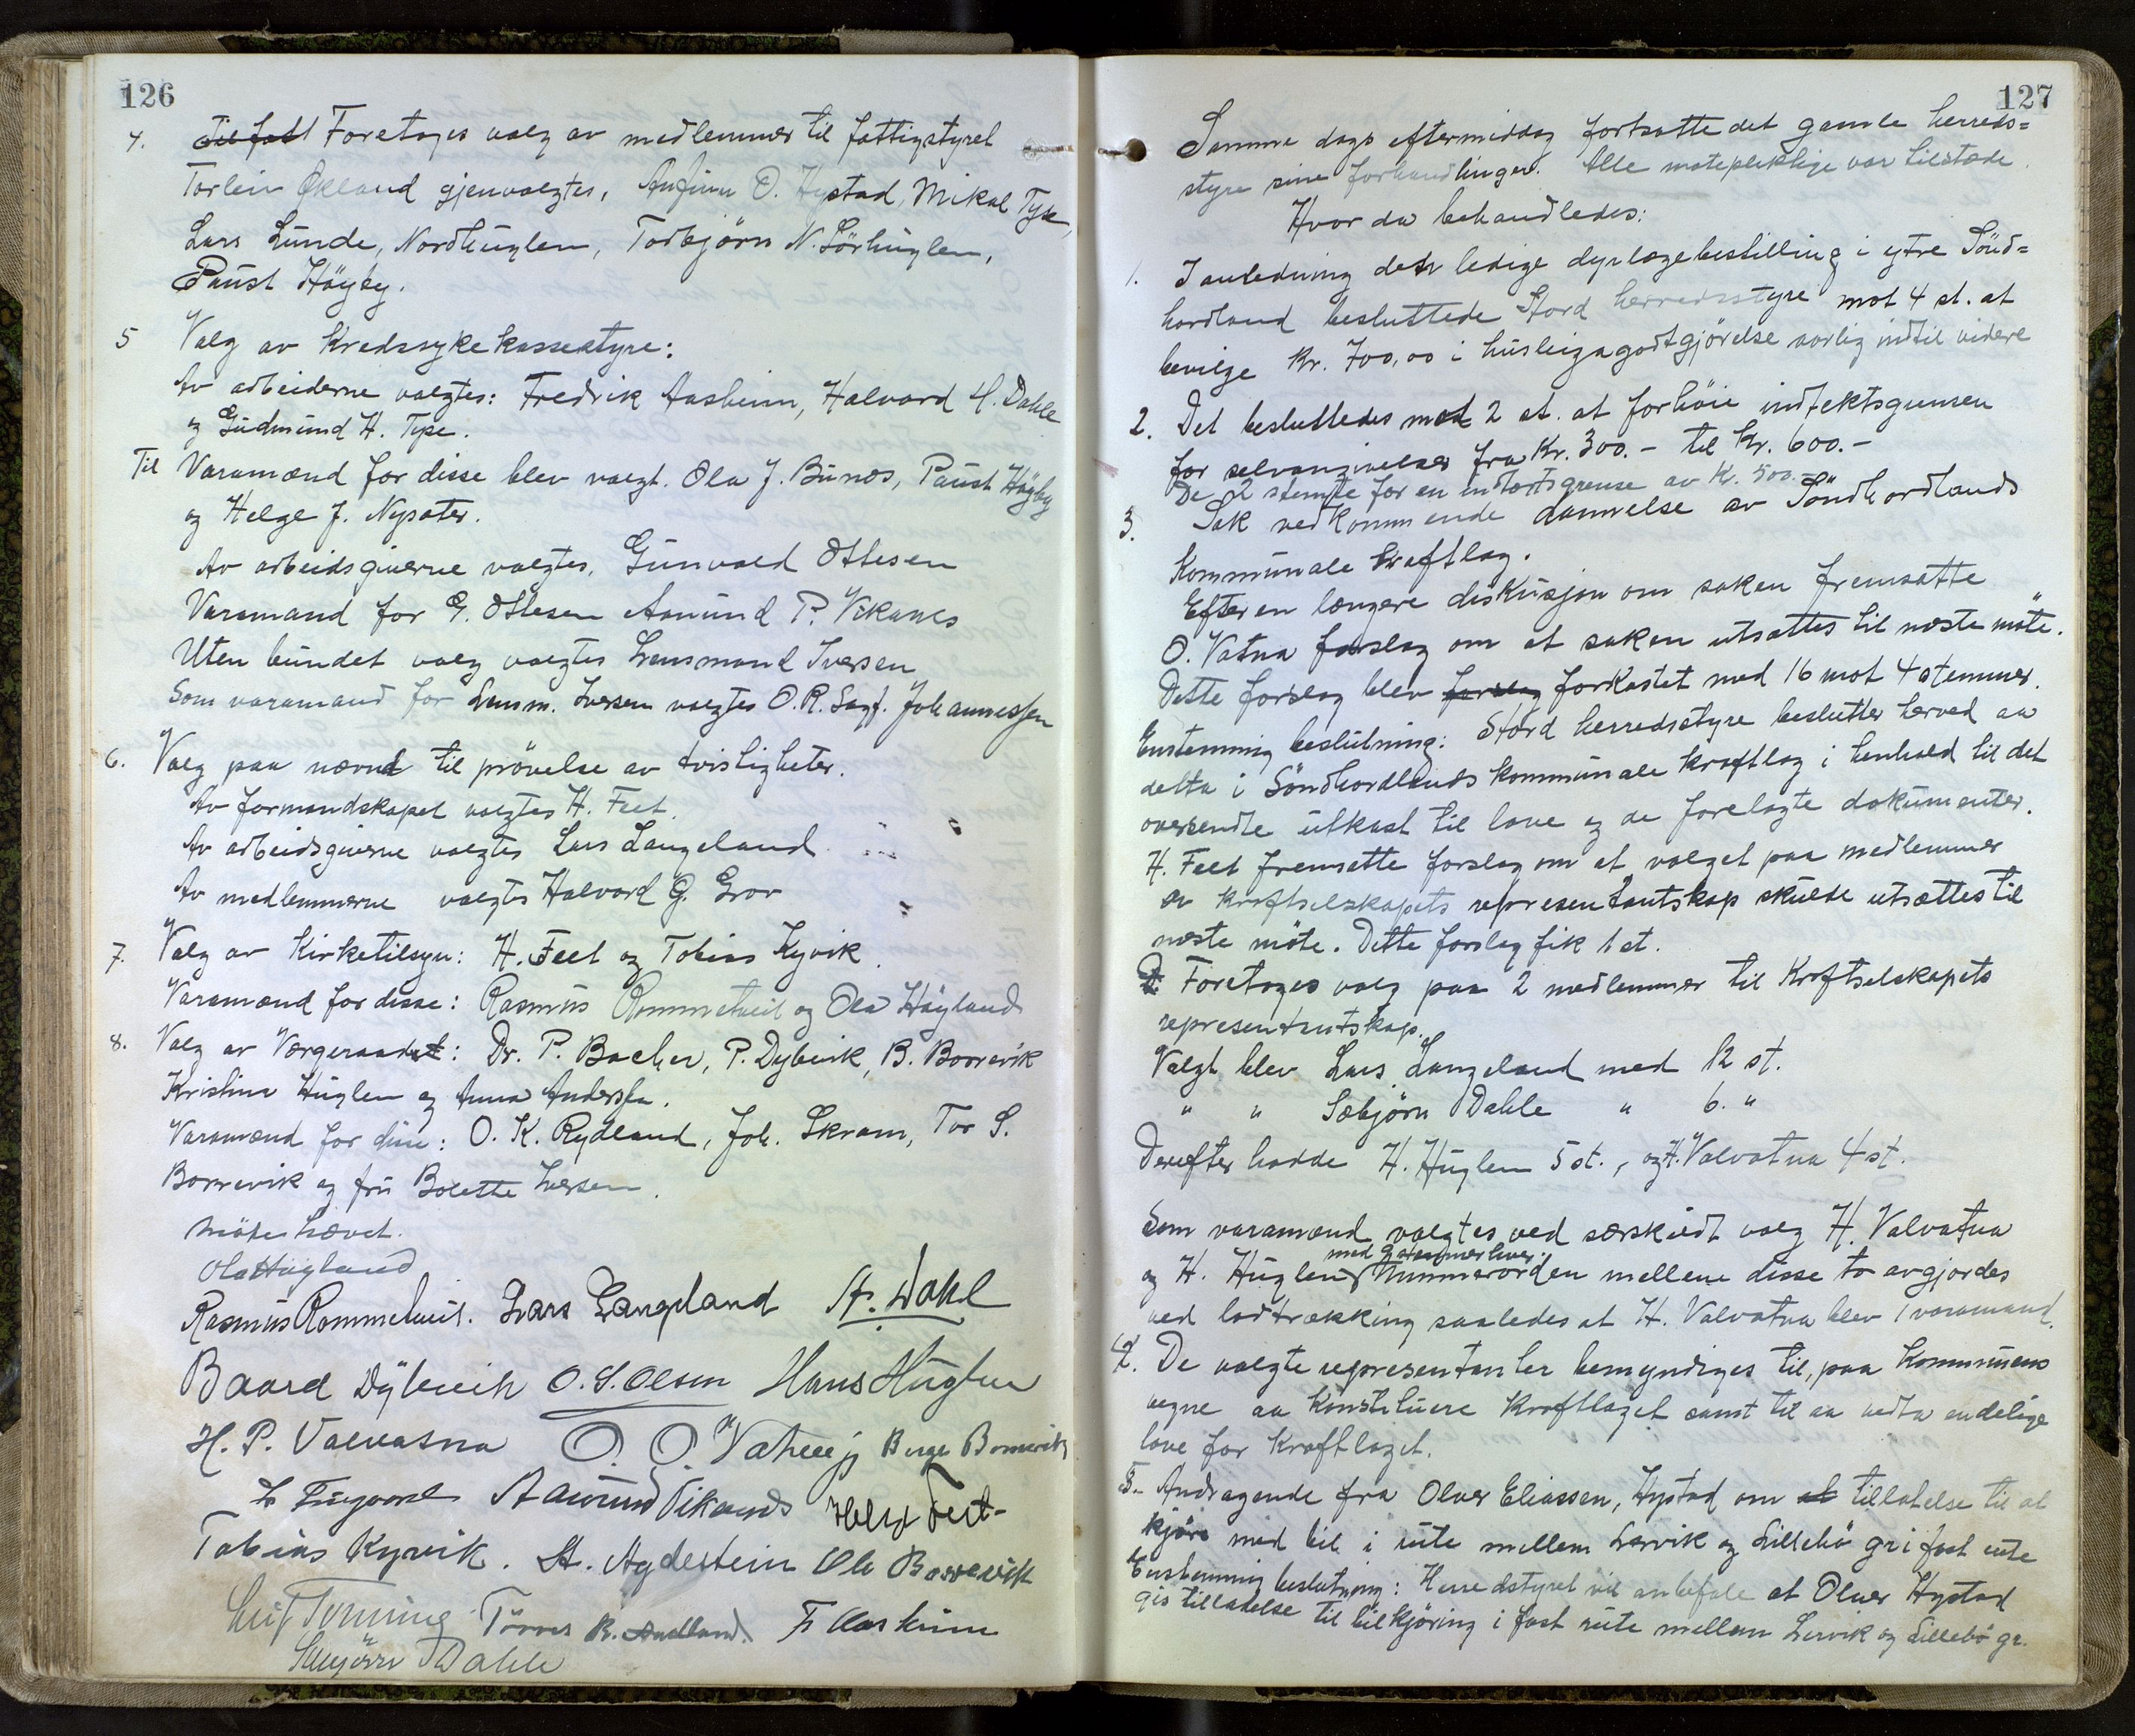 126
4. Til fatt Foretoges valg av medlemmer til fattigstyret
Torlein Økland gjenvalgtes, Anfinn O. Hystad, Mikal Tyse,
Lars Lunde, Nordhuglen, Torbjörn N. Sörhuglen,
Paust Høyby.
5 Valg av Kredssykekassestyre:
Av arbeiderne valgtes: Fredrik Aasheim, Halvard H. Dahle
og Gudmund H. Tyse.
Til Varamænd for disse blev valgt. Ola J. Bunes, Paust Høyby
og Helge J. Nysæter.
Av arbeidsgiverne valgtes, Gunvald Ottesen
Varamand for G. Ottesen Aamund P. Vikanes
Uten bundet valg valgtes Lensmand Iversen
Som varamand for Lensm. Iversen valgtes O. R. Sagf. Johannessen
6. Valg paa nævnd til prövelse av tvistigheter.
Av formandskapet valgtes H. Feet.
Av arbeidsgiverne valgtes Lars Langeland
Av medlemmerne valgtes Halvard G. Grov
7. Valg av Kirketilsyn: H. Feet og Tobias Kyvik.
Varamænd for disse: Rasmus Rommetveit og Ola Høyland
8. Valg av Vergeraadet: Dr. P. Bacher, P. Dybvik, B. Borrevik
Kristina Huglen og Anna Anderssen.
Varamænd for disse: O. K. Rydland, Joh. Skram, Tor S.
Borrevik og fru Bolette Iversen.
Möte hævet.
Ola Høyland
Rasmus Rommetveit. Lars Langeland St. Dahl
Baard Dÿbvik O. S. Olsen Hans Huglen
H. P. Valvatna O. O. Vatna Berge Borrevik
Aamund Vikanes Helge Feet
Tobias Kyvik. St. Agdestein Ole Borrevik
Leif Tenning Törres R. Aadland. F. Aasheim
Sæbjörn Dahle
127
Samme dags eftermiddag fortsatte det gamle herreds=
styre sine forhandlinger. Alle møtepliktige var tilstæde.
Hvor da behandledes:
1. I anledning den ledige dyrlægebestilling i ytre Sünd=
hordland besluttede Stord herredsstyre mot 4 st. at
bevilge Kr. 700,00 i husleiegodtgjörelse aarlig indtil videre
2. Det besluttedes mot 2 st. at forhöie indtektsgrensen
for selvangivelser fra Kr. 300.- til Kr. 600.-
De 2 stemte for en indtægtsgrense av kr. 500.-
3. Sak vedkommende dannelse av Söndhordlands
Kommunale Kraftlag.
Efter en længere diskusjon om saken fremsatte
O. Vatna forslag om at saken utsættes til næste möte.
Dette forslag blev forslag forkastet med 16 mot 4 stemmer.
Enstemmig beslutning: Stord herredsstyre beslutter herved aa
delta i Söndhordlands kommunale kraftlag i henhold til det
oversendte utkast til love og de forelagte dokumenter.
H. Feet fremsatte forslag om at valget paa medlemmer
av kraftselskapets representantskap skulde utsættes til
næste möte. Dette forslag fik 1 st.
Foretoges valg paa 2 medlemmer til Kraftselskapets
representantskap.
Valgt blev Lars Langeland med 12 st.
" " Sæbjörn Dahle " 6. "
Derefter hadde H. Huglen 5 st., og H. Valvatna 4 st.
Som varamænd valgtes ved særskildt valg H. Valvatna
med 9 stemmer hver.
og H. Huglen Nummerorden mellem disse to avgjordes
ved lodtrækking saaledes at H. Valvatna blev 1 varamand.
4. De valgte representanter bemyndiges til, paa kommunens
vegne aa konstituere Kraftlaget samt til aa vedta endelige
love for kraftlaget.
5. Andragende fra Olver Eliassen, Hystad om at tillatelse til at
kjöre med bil i rute mellem Lervik og Lillebö gr i fast rute
Enstemmig beslutning: Herredstyret vil anbefale at Olver Hystad
gis tilladelse til bilkjöring i fast rute mellem Lervik og Lillebö gr.